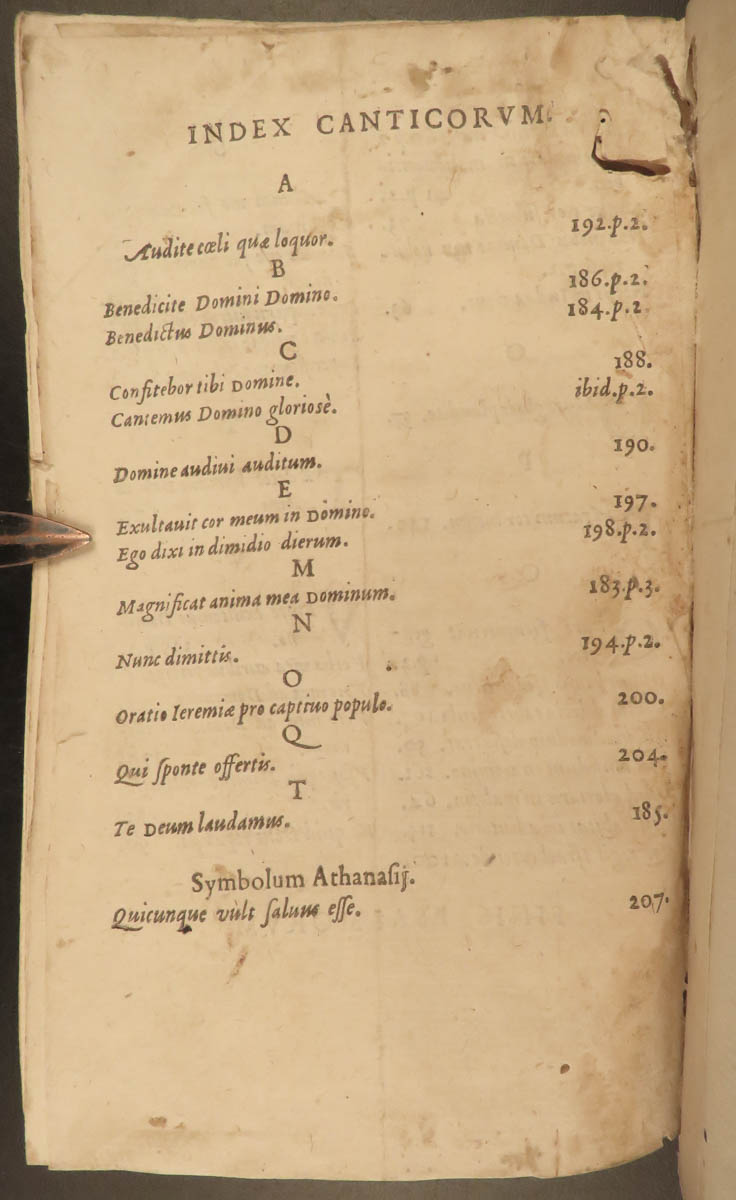 INDEX CANTICORVM.
A
Audite cœli quæ loquor. 192.p.2.
B
Benedicite Domini Domino. 186.p.2.
Benedictus Dominus. 184.p.2
C
Confitebor tibi Domine. 188.
Cantemus Domino gloriosè. ibid.p.2.
D
Domine audiui auditum. 190.
E
Exultauit cor meum in Domino. 197.
Ego dixi in dimidio dierum. 198.p.2.
M
Magnificat anima mea Dominum. 183.p.3.
N
Nunc dimittis. 194.p.2.
O
Oratio Ieremiæ pro captiuo populo. 200.
Q
Qui ſponte offertis. 204.
T
Te Deum laudamus. 185.
Symbolum Athanaſij.
Quicunque vult ſaluus eſſe. 207.